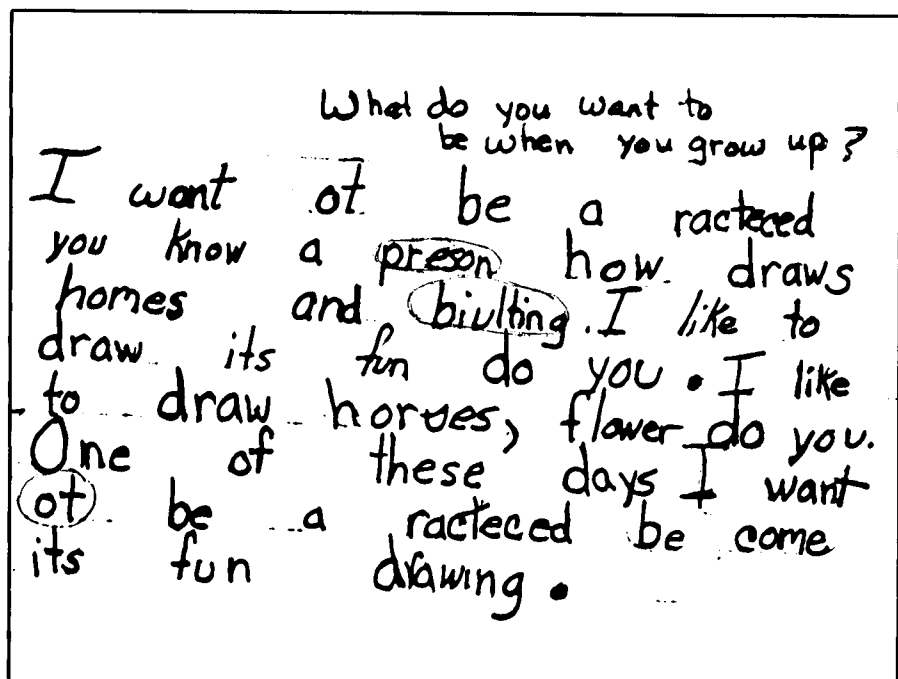 What do you want to
be when you grow up?
I want ot be a racteced
you know a preson how draws
homes and biulting. I like to
draw its fun do you. I like
to draw horses, flower do you.
One of these days I want
ot be a racteced be come
its fun drawing.